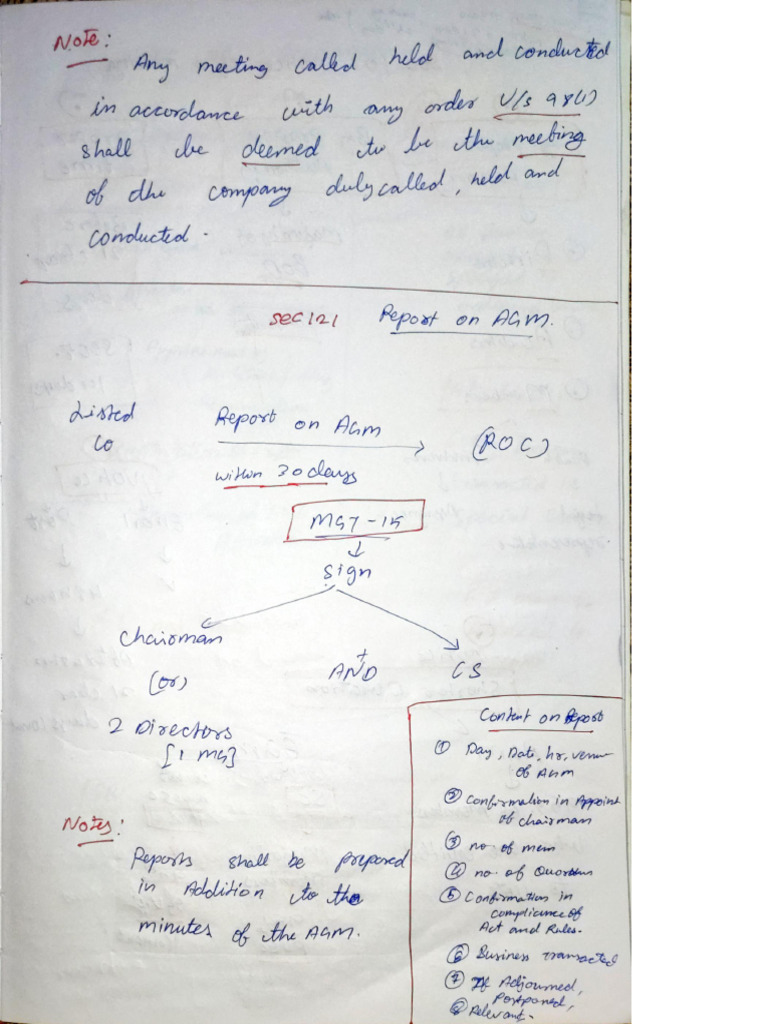 Note:
Any meeting called held and conducted
in accordance with any order U/s 98(1)
shall be deemed to be the meeting
of the company duly called, held and
conducted.
SEC 121 Report on AGM.
Listed
Co
Report on AGM
within 30 days
(ROC)
MGT-15
Sign
Chairman
(or)
2 Directors
[1 MG]
+
AND
CS
Content on Report
① Day, Date, hr, venue
of AGM
② Confirmation in Appoint
of chairman
③ no. of mem
④ no. of Quorum
⑤ Confirmation in
compliance of
Act and Rules.
⑥ Business transacted
⑦ If Adjourned,
Postponed,
⑧ Relevant.
Notes:
Reports shall be prepared
in Addition to the
minutes of the AGM.